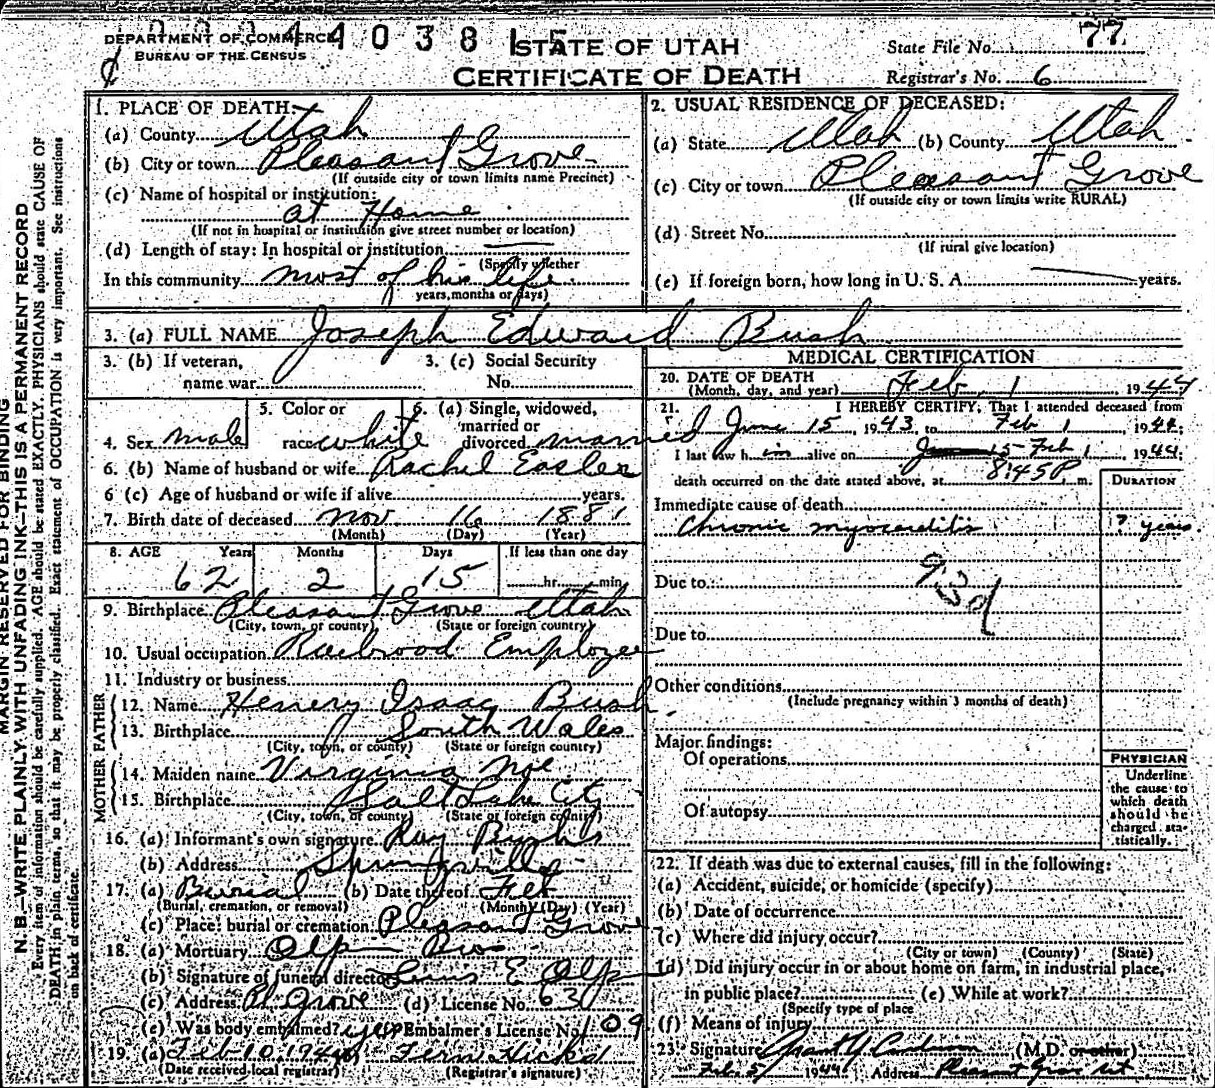 DEPARTMENT OF COMMERCE
BUREAU OF THE CENSUS
4 0 3 8
STATE OF UTAH
CERTIFICATE OF DEATH
State File No. 77
Registrar's No. 6
MARGIN RESERVED FOR BINDING
N. B.—WRITE PLAINLY WITH UNFADING INK—THIS IS A PERMANENT RECORD
Every item of information should be carefully supplied. AGE should be stated EXACTLY. PHYSICIANS should state CAUSE OF
DEATH in plain terms, so that it may be properly classified. Exact statement of OCCUPATION is very important. See instructions
on back of certificate.
1. PLACE OF DEATH:
(a) County Utah
(b) City or town Pleasant Grove
(If outside city or town limits name Precinct)
(c) Name of hospital or institution:
at Home
(If not in hospital or institution give street number or location)
(d) Length of stay: In hospital or institution
(Specify whether
In this community most of his life
years, months or days)
2. USUAL RESIDENCE OF DECEASED:
(a) State Utah (b) County Utah
(c) City or town Pleasant Grove
(If outside city or town limits write RURAL)
(d) Street No.
(If rural give location)
(e) If foreign born, how long in U. S. A. years.
3. (a) FULL NAME Joseph Edward Bush
3. (b) If veteran,
name war
3. (c) Social Security
No.
4. Sex male
5. Color or
race white
6. (a) Single, widowed,
married or
divorced married
6. (b) Name of husband or wife Rachel Easler
6 (c) Age of husband or wife if alive years.
7. Birth date of deceased Nov 16 1881
(Month) (Day) (Year)
8. AGE Years Months Days If less than one day
62 2 15 hr. min.
9. Birthplace Pleasant Grove Utah
(City, town, or county) (State or foreign country)
10. Usual occupation Railroad Employee
11. Industry or business
FATHER
12. Name Henery Isaac Bush
13. Birthplace South Wales
(City, town, or county) (State or foreign country)
MOTHER
14. Maiden name Virginia Noe
15. Birthplace Salt Lake City
(City, town, or county) (State or foreign country)
16. (a) Informant's own signature Ray Bush
(b) Address Springville
17. (a) Burial (b) Date thereof Feb
(Burial, cremation, or removal) (Month) (Day) (Year)
(c) Place: burial or cremation Pleasant Grove
18. (a) Mortuary Olpin Bros
(b) Signature of funeral director E Olpin
(c) Address Pl Grove (d) License No. 630
(e) Was body embalmed? yes Embalmer's License No. 109
19. (a) Feb 10, 1944 Fern Hicks
(Date received local registrar) (Registrar's signature)
MEDICAL CERTIFICATION
20. DATE OF DEATH
(Month, day, and year) Feb 1 1944
21. I HEREBY CERTIFY, That I attended deceased from
June 15, 1943, to Feb 1 1944;
I last saw him alive on Feb 1, 1944;
death occurred on the date stated above, at 8:45 P. m.
DURATION
Immediate cause of death
Chronic myocarditis ? years
93d
Due to
Due to
Other conditions
(Include pregnancy within 3 months of death)
Major findings:
Of operations
Of autopsy
PHYSICIAN
Underline
the cause to
which death
should be
charged sta-
tistically.
22. If death was due to external causes, fill in the following:
(a) Accident, suicide, or homicide (specify)
(b) Date of occurrence
(c) Where did injury occur?
(City or town) (County) (State)
(d) Did injury occur in or about home on farm, in industrial place,
in public place? (e) While at work?
(Specify type of place
(f) Means of injury
23. Signature Grant Y Anderson (M.D. or other)
Feb 5 1944 Address Pleasant Grove Ut